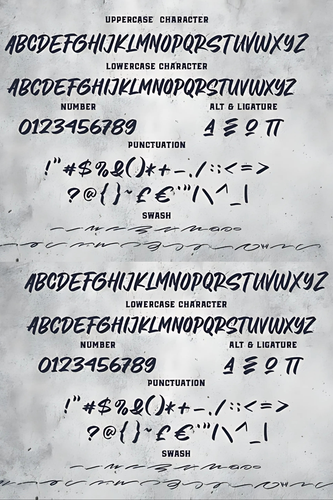 UPPERCASE CHARACTER
ABCDEFGHIJKLMNOPQRSTUVWXYZ
LOWERCASE CHARACTER
ABCDEFGHIJKLMNOPQRSTUVWXYZ
NUMBER ALT & LIGATURE
0123456789 A E O TT
PUNCTUATION
!"#$%&()*+-./:;<=>
?@{}~£€'"|\^_|
SWASH
ABCDEFGHIJKLMNOPQRSTUVWXYZ
LOWERCASE CHARACTER
ABCDEFGHIJKLMNOPQRSTUVWXYZ
NUMBER ALT & LIGATURE
0123456789 A E O TT
PUNCTUATION
!"#$%&()*+-./:;<=>
?@{}~£€'"|\^_|
SWASH